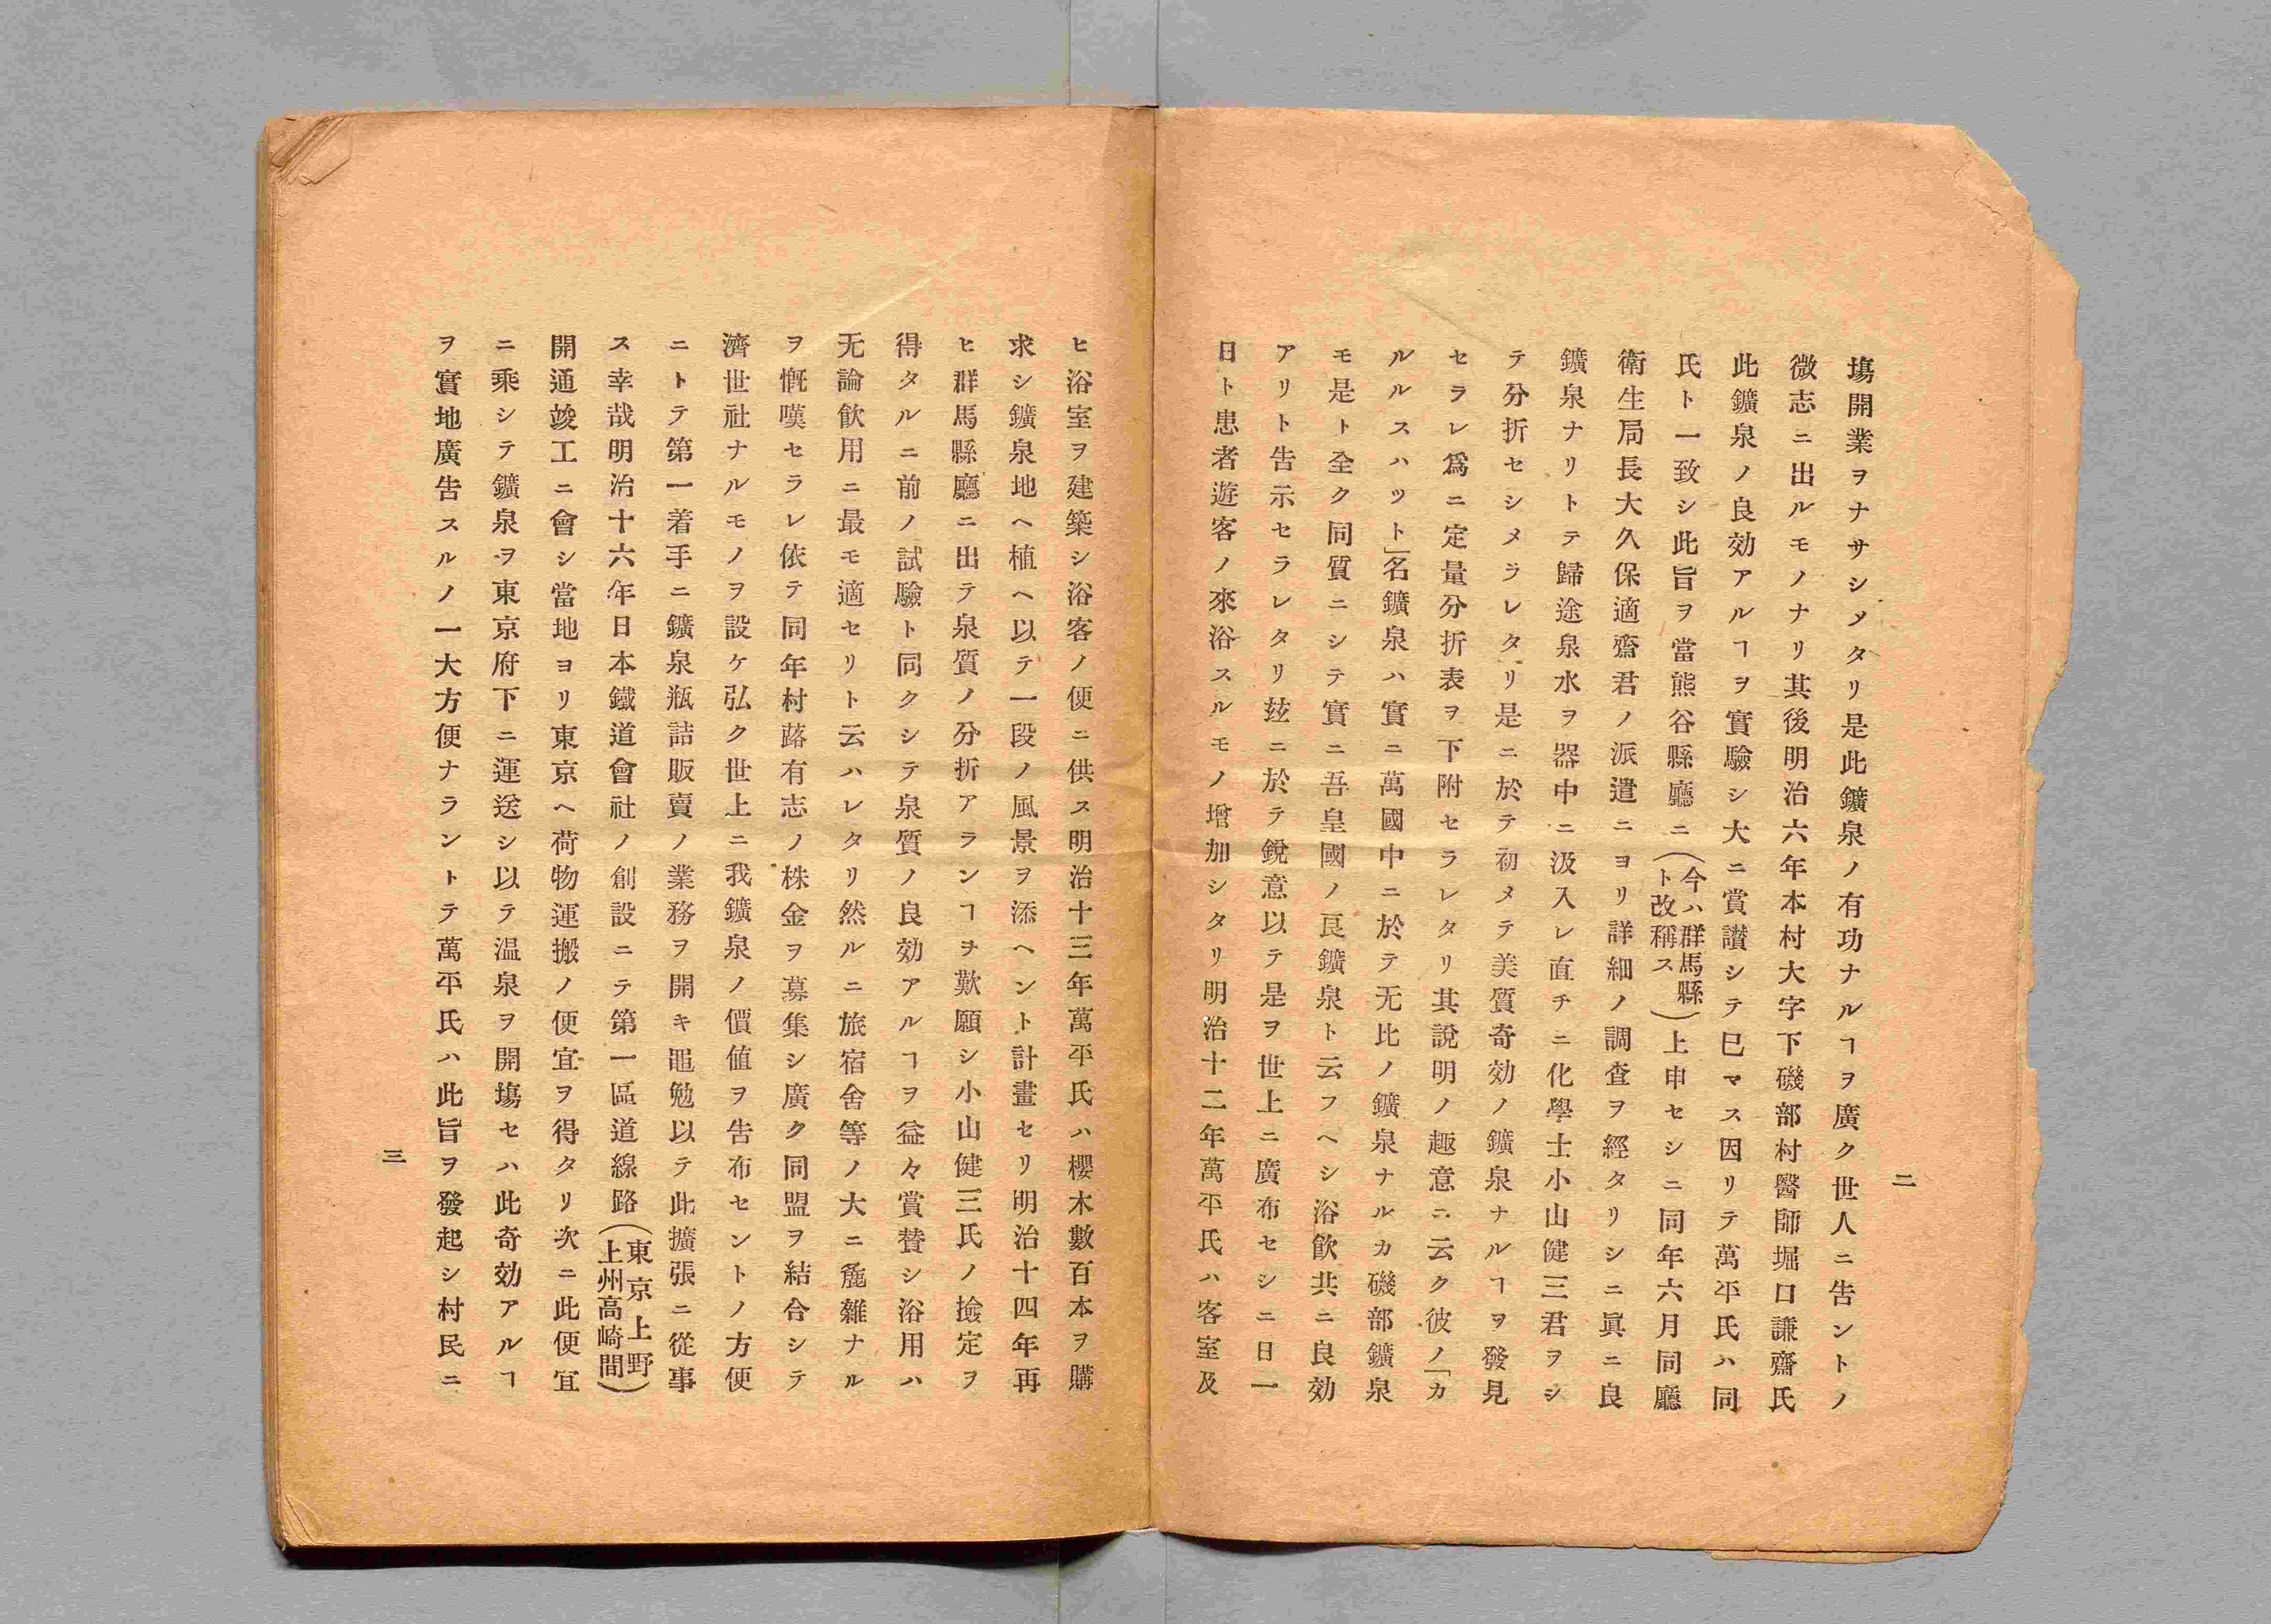 二
塲開業ヲナサシメタリ是此鑛泉ノ有功ナルヿヲ廣ク世人ニ告ントノ
微志ニ出ルモノナリ其後明治六年本村大字下磯部村醫師堀口謙齋氏
此鑛泉ノ良効アルヿヲ實驗シ大ニ賞讃シテ已マス因リテ萬平氏ハ同
氏ト一致シ此旨ヲ當熊谷縣廳ニ(今ハ群馬縣ト改稱ス)上申セシニ同年六月同廳
衛生局長大久保適齋君ノ派遣ニヨリ詳細ノ調査ヲ經タリシニ眞ニ良
鑛泉ナリトテ歸途泉水ヲ器中ニ汲入レ直チニ化學士小山健三君ヲシ
テ分折セシメラレタリ是ニ於テ初メテ美質奇効ノ鑛泉ナルヿヲ發見
セラレ爲ニ定量分折表ヲ下附セラレタリ其說明ノ趣意ニ云ク彼ノ「カ
ルルスハット」名鑛泉ハ實ニ萬國中ニ於テ无比ノ鑛泉ナルカ磯部鑛泉
モ是ト全ク同質ニシテ實ニ吾皇國ノ良鑛泉ト云フヘシ浴飮共ニ良効
アリト告示セラレタリ玆ニ於テ銳意以テ是ヲ世上ニ廣布セシニ日一
日ト患者遊客ノ來浴スルモノ增加シタリ明治十二年萬平氏ハ客室及
ヒ浴室ヲ建築シ浴客ノ便ニ供ス明治十三年萬平氏ハ櫻木數百本ヲ購
求シ鑛泉地ヘ植ヘ以テ一段ノ風景ヲ添ヘント計畫セリ明治十四年再
ヒ群馬縣廳ニ出テ泉質ノ分折アランヿヲ歎願シ小山健三氏ノ撿定ヲ
得タルニ前ノ試驗ト同クシテ泉質ノ良効アルヿヲ益々賞賛シ浴用ハ
无論飮用ニ最モ適セリト云ハレタリ然ルニ旅宿舍等ノ大ニ麁雜ナル
ヲ慨嘆セラレ依テ同年村蕗有志ノ株金ヲ募集シ廣ク同盟ヲ結合シテ
濟世社ナルモノヲ設ケ弘ク世上ニ我鑛泉ノ價値ヲ告布セントノ方便
ニトテ第一着手ニ鑛泉瓶詰販賣ノ業務ヲ開キ黽勉以テ此擴張ニ從事
ス幸哉明治十六年日本鐵道會社ノ創設ニテ第一區道線路(東京上野上州高崎間)
開通竣工ニ會シ當地ヨリ東京ヘ荷物運搬ノ便宜ヲ得タリ次ニ此便宜
ニ乘シテ鑛泉ヲ東京府下ニ運送シ以テ温泉ヲ開塲セハ此奇効アルヿ
ヲ實地廣告スルノ一大方便ナラントテ萬平氏ハ此旨ヲ發起シ村民ニ
三